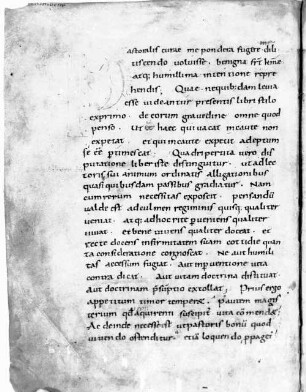 astoralis curae me pondera fugere deli
tiscendo voluisse. benigna frt kme
atq; humillima intentione repre
hendis. Quae nequibdam levia
esse videantur presentis libri stilo
exprimo. de eorum gravedine omne quod
penso. Ut & haec qui vacat incaute non
expetat. et qui incaute expetit. adeptum
se ee ptimescat. Quadripertita vero dis
putatione liber iste distinguitur. ut ad lec
toris sui animum ordinatis alligationibus
quasi quibusdam passibus gradiatur. Nam
cum rerum necessitas exposcit. pensandum
valde est ad culmen regiminis quisq; qualiter
veniat. atq; ad hoc rite pveniens qualiter
vivat. et bene vivens qualiter doceat. et
recte docens infirmitatem suam cotidie quan
ta consideratione cognoscat. Ne aut humili
tas accessum fugiat. Aut pventione vita
contradicat. Aut vitam doctrina destituat.
Aut doctrinam psumptio extollat. Prius ergo
appetitum timor temperet. Post autem magis
terium quod a querente suscipit vita commendet.
Ac deinde necesse est ut pastoris bonum quod
vivendo ostenditur etia loquendo ppaget